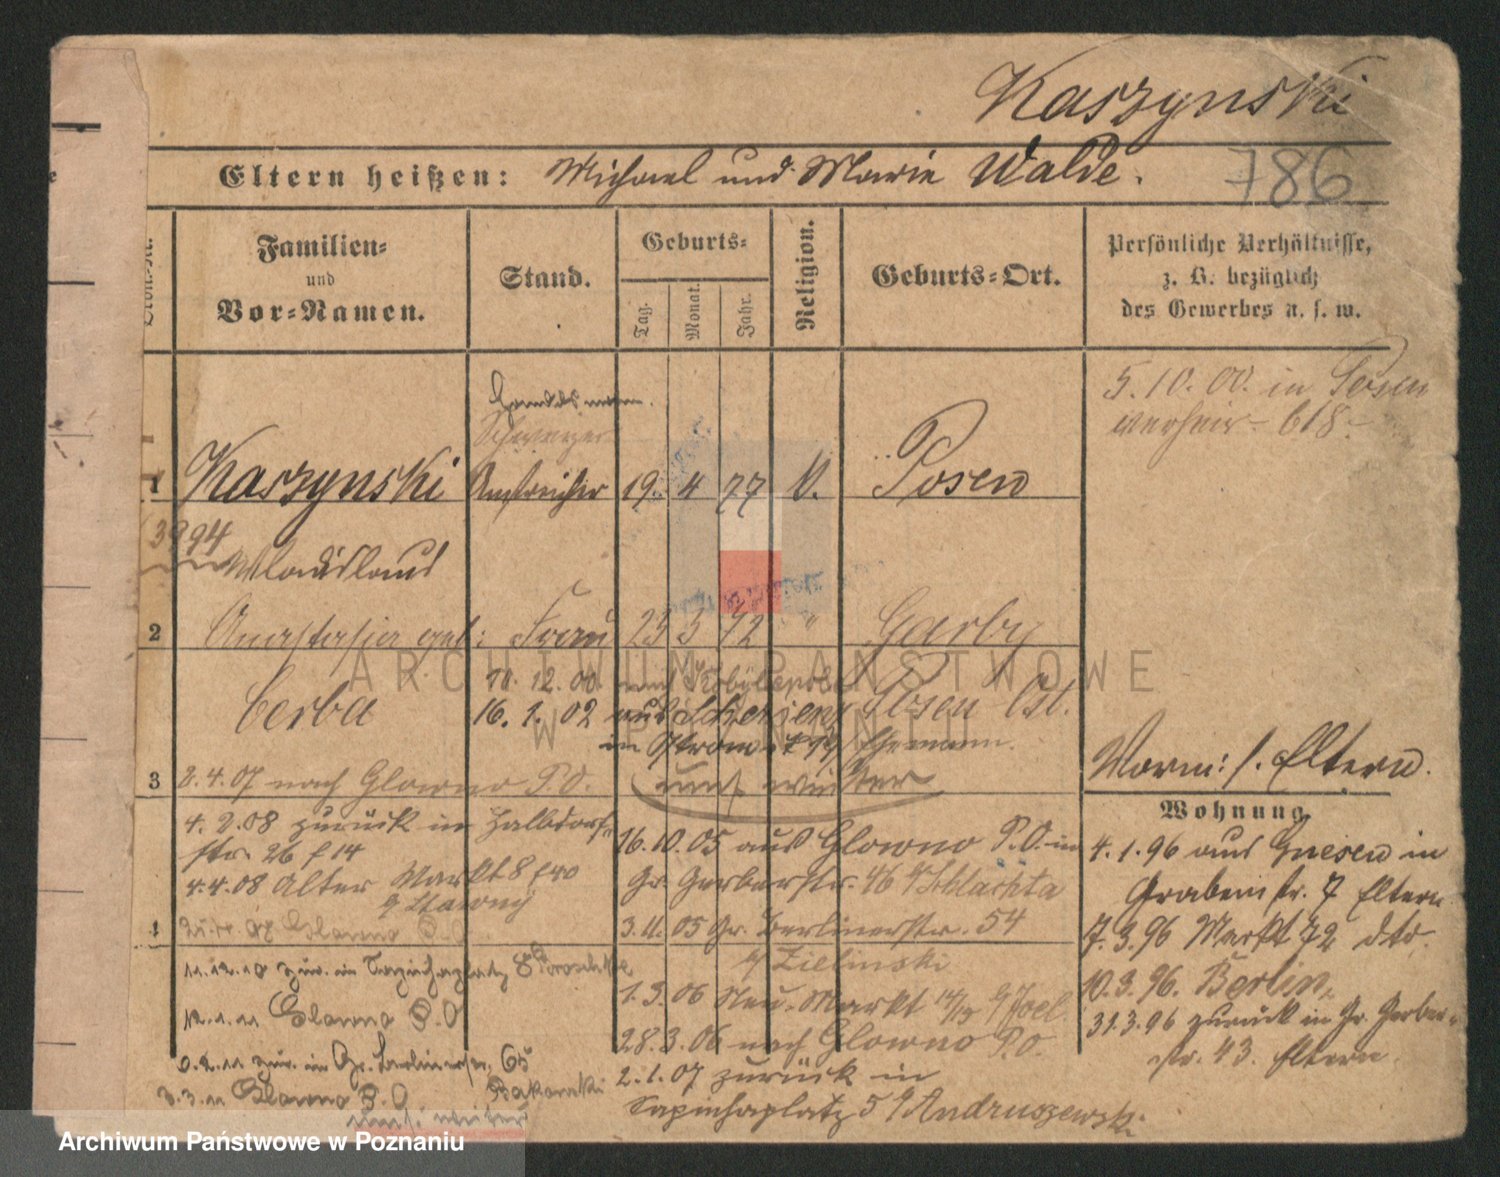 Kaszynski
Eltern heißen: Michael und Marie Walde.
786
Familien-
und
Vor-Namen.
Stand.
Geburts-
Tag.
Monat.
Jahr.
Religion.
Geburts-Ort.
Persönliche Verhältnisse,
z. B. bezüglich
des Gewerbes u. s. w.
5. 10. 00. in Posen
verheir. 618
1 Kaszynski Anstreicher 19. 4 77 Posen
3994
Wladislaus
2 Anastasia geb: Frau 23 3 72 " Garby
Cerba
12. 00 Posen Ost.
16. 1. 02 aus
in Ehemann.
3 2.4.07 nach Glowno P.O.
umst weiter
Vorm: s. Eltern.
Wohnung
4. 2. 08 zurück in Halbdorf-
str. 26 f 14
4.4.08 Alter Markt 8
16. 10. 05 aus Glowno P.O. in
Gr. Gerberstr. 46 Schlachta
3. 11. 05 Gr. Berlinerstr. 54
Zielinski
1. 3. 06 Neu. Markt 14/15 Joel
28. 3. 06 nach Glowno P.O.
2. 1. 07 zurück in
Sapiehaplatz 5 Andruszewski
4. 1. 96 aus Gnesen in
Grabenstr. 7 Eltern
7. 3. 96 Markt 72 dto.
10. 3. 96. Berlin
31. 3. 96 zurück in Gr. Gerber-
str. 43. Eltern.
Glowno P.O.
11. 12. 10 zur. in Sapiehaplatz 8
12. 1. 11 Glowno P.O
zur. in Gr. Berlinerstr. 65
3. 3. 11 Glowno P.O
umst. weiter
ARCHIWUM PAŃSTWOWE
W POZNANIU
Archiwum Państwowe w Poznaniu